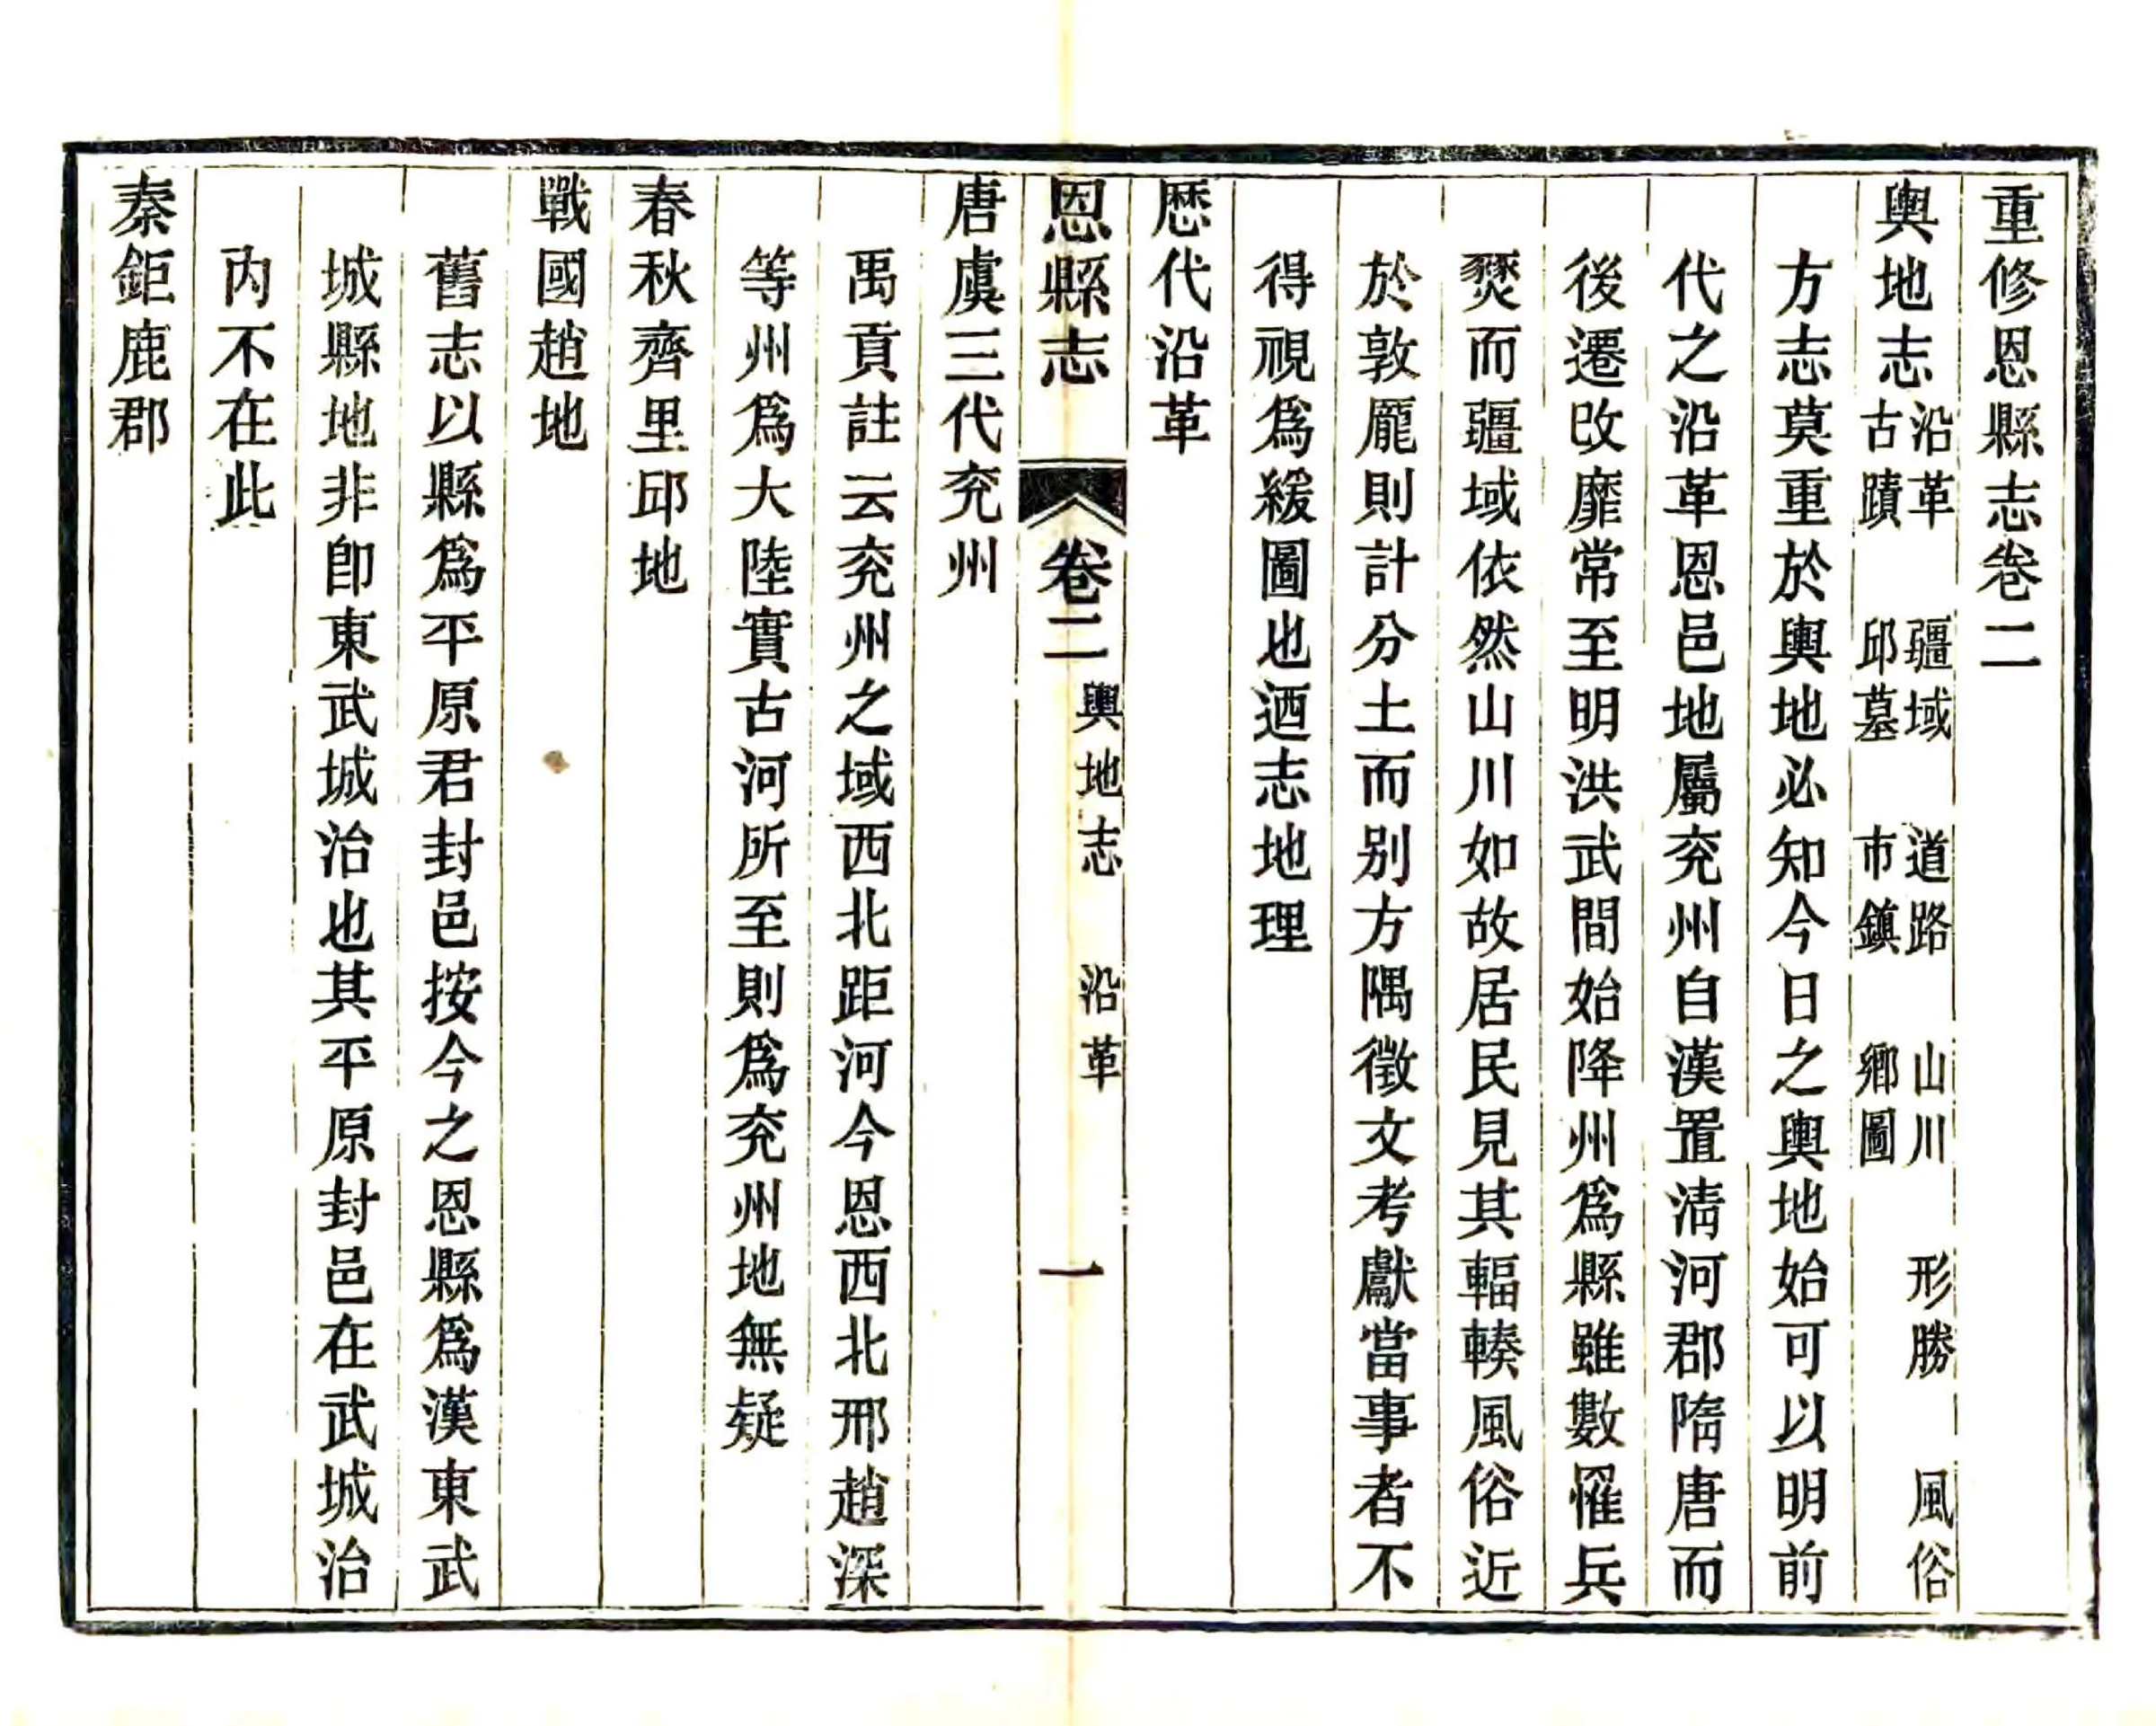 重修恩縣志卷二
輿地志 沿革 疆域 道路 山川 形勝 風俗
古蹟 邱墓 市鎮 鄉圖
方志莫重於輿地必知今日之輿地始可以明前
代之沿革恩邑地屬兖州自漢置清河郡隋唐而
後遷改靡常至明洪武間始降州爲縣雖數罹兵
燹而疆域依然山川如故居民見其輻輳風俗近
於敦龐則計分土而别方隅徵文考獻當事者不
得視爲緩圖也迺志地理
歷代沿革
恩縣志 卷二 輿地志 沿革 一
唐虞三代兖州
禹貢註云兖州之域西北距河今恩西北邢趙深
等州爲大陸實古河所至則爲兖州地無疑
春秋齊里邱地
戰國趙地
舊志以縣爲平原君封邑按今之恩縣爲漢東武
城縣地非卽東武城治也其平原封邑在武城治
內不在此
秦鉅鹿郡